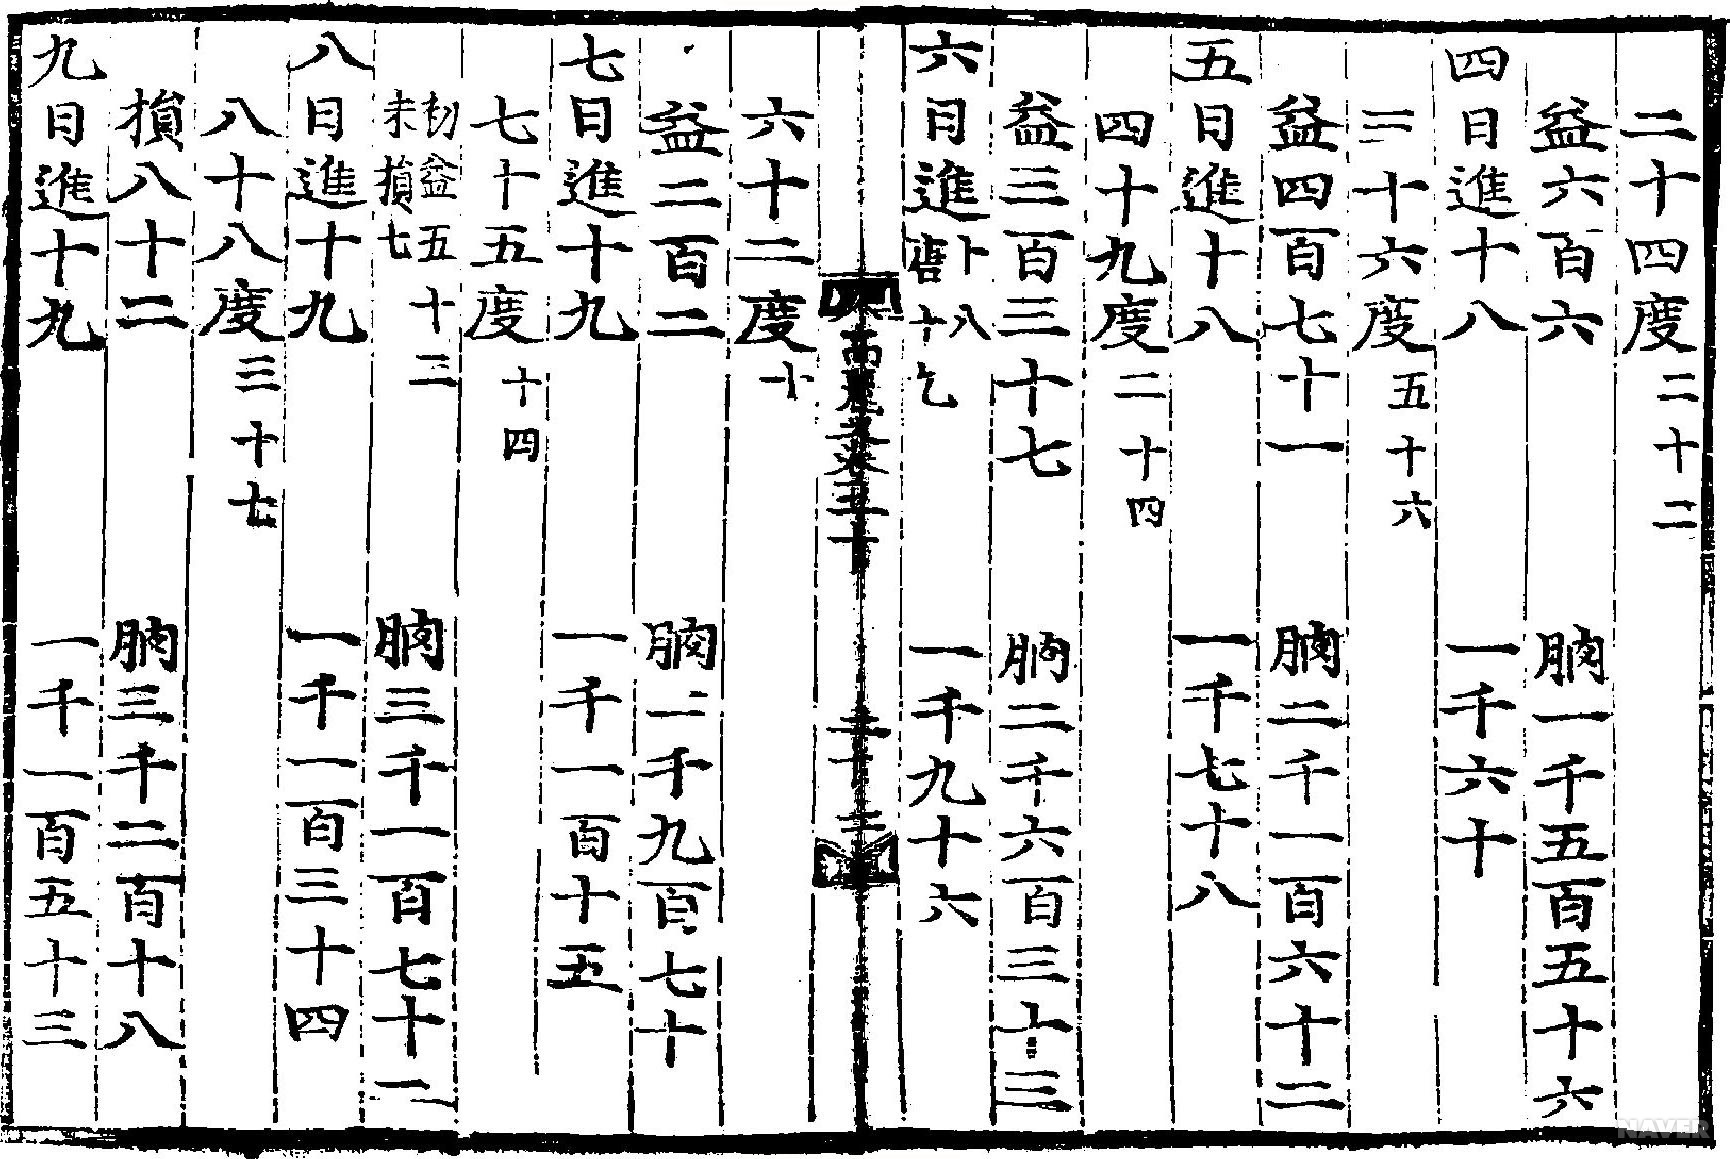 二十四度二十二
益六百六 朒一千五百五十六
四日進十八 一千六十
三十六度五十六
益四百七十一 朒二千一百六十二
五日進十八 一千七十八
四十九度二十四
益三百三十七 朒二千六百三十三
六日進卜八唐十乞 一千九十六
高麗史卷五十
六十二度十
益二百二 朒二千九百七十
七日進十九 一千一百十五
七十五度十四
初益五十三末損七 朒三千一百七十二
八日進十九 一千一百三十四
八十八度三十七
損八十二 朒三千二百十八
九日進十九 一千一百五十三
NAVER